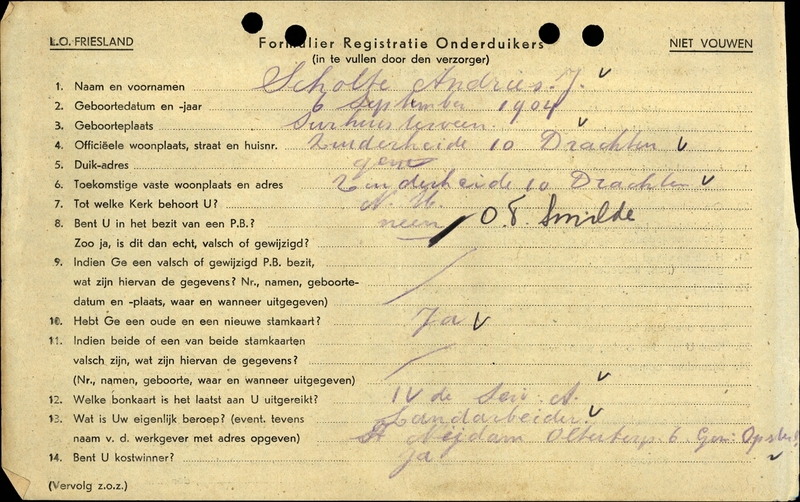 L.O. FRIESLAND
Formulier Registratie Onderduikers
NIET VOUWEN
(in te vullen door den verzorger)
1. Naam en voornamen Scholte Andries. J. v
2. Geboortedatum en -jaar 6 September 1904
3. Geboorteplaats Surhuisterveen v
4. Officiëele woonplaats, straat en huisnr. Zuiderheide 10 Drachten v
5. Duik-adres geen
6. Toekomstige vaste woonplaats en adres Zuiderheide 10 Drachten v
7. Tot welke Kerk behoort U? N. H.
8. Bent U in het bezit van een P.B.? neen / Smilde
Zoo ja, is dit dan echt, valsch of gewijzigd?
9. Indien Ge een valsch of gewijzigd P.B. bezit,
wat zijn hiervan de gegevens? Nr., namen, geboorte-
datum en -plaats, waar en wanneer uitgegeven)
10. Hebt Ge een oude en een nieuwe stamkaart? Ja v
11. Indien beide of een van beide stamkaarten
valsch zijn, wat zijn hiervan de gegevens?
(Nr., namen, geboorte, waar en wanneer uitgegeven) v
12. Welke bonkaart is het laatst aan U uitgereikt? IV de A.
13. Wat is Uw eigenlijk beroep? (event. tevens Landarbeider v
naam v. d. werkgever met adres opgeven) Nijdam Olterterp 6 Gem:
14. Bent U kostwinner? ja v
(Vervolg z.o.z.)